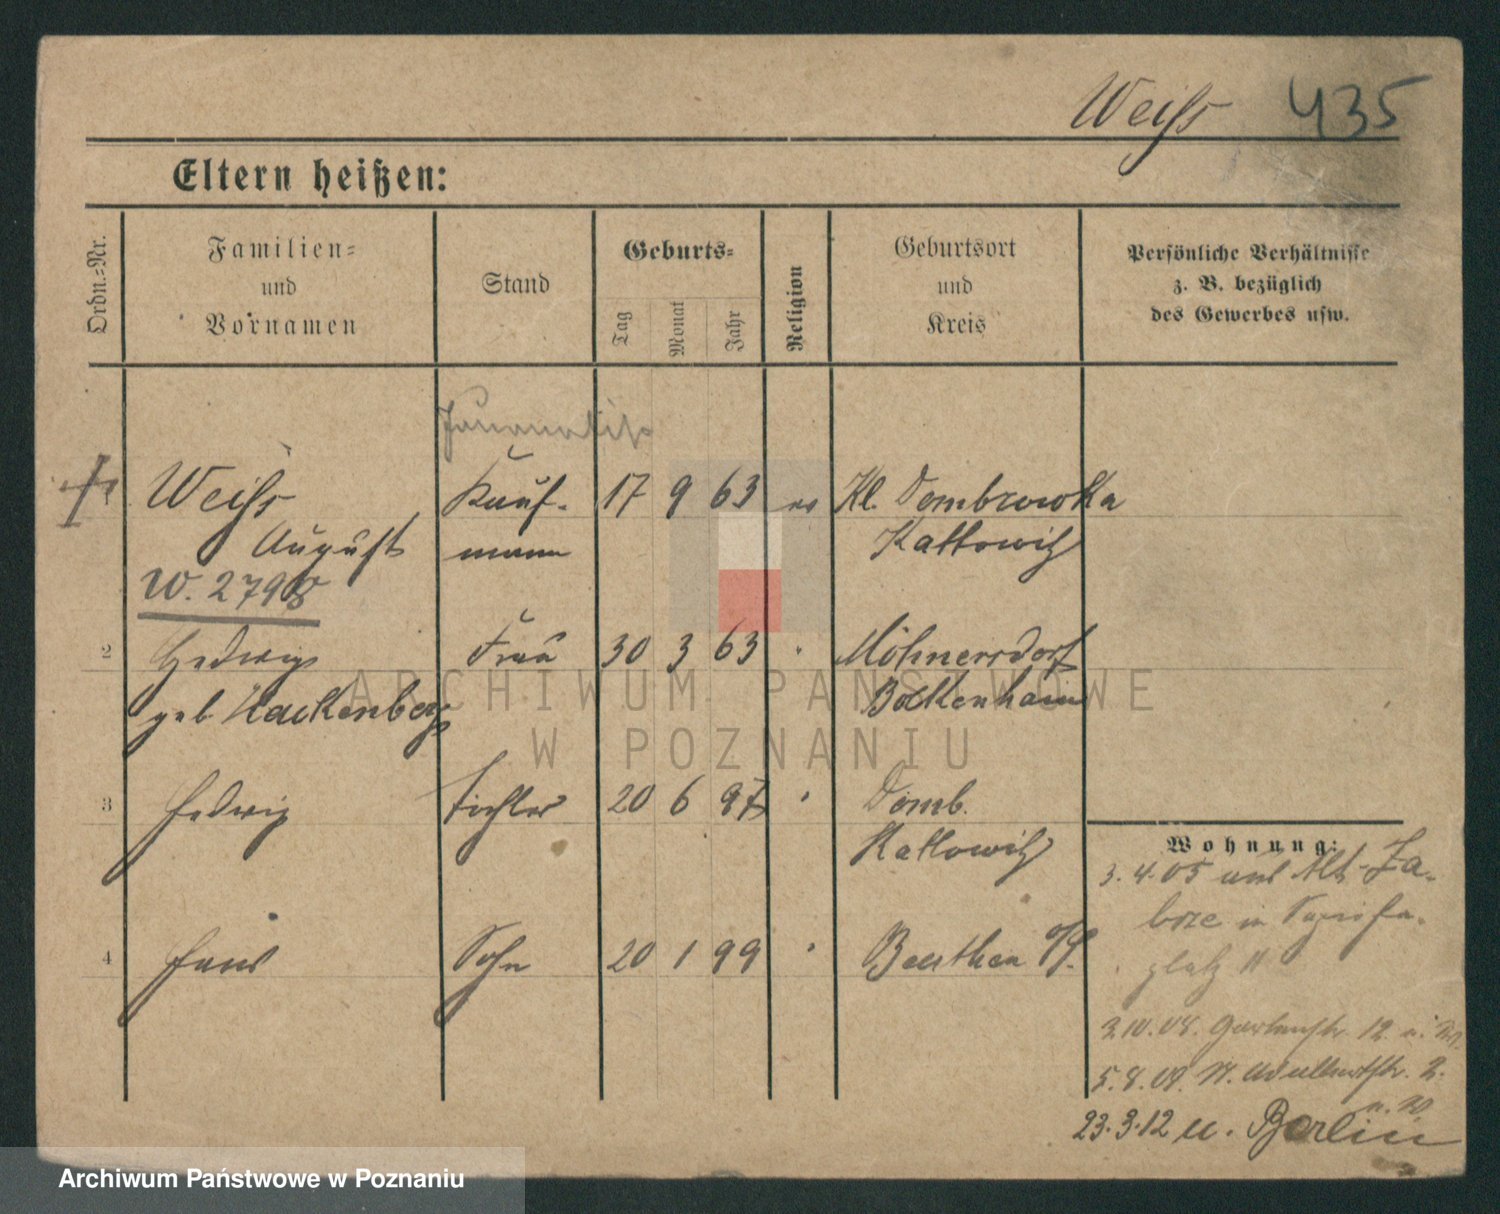 Weiſs 435
Eltern heißen:
Ordn.=Nr.
Familien=
und
Vornamen
Stand
Geburts=
Tag
Monat
Jahr
Religion
Geburtsort
und
Kreis
Persönliche Verhältnisse
z. B. bezüglich
des Gewerbes usw.
1 Weiſs Kauf- 17 9 63 ev Kl. Dombrowka
August mann Kattowitz
W. 2798
2 Hedwig Frau 30 3 63 " Möhnersdorf
geb. Hackenberg Bolkenhain
3 Hedwig Tochter 20 6 97 " Domb.
Kattowitz
Wohnung:
3. 4. 05 Alt-Za-
brze in
4 Hans Sohn 20 1 99 " Beuthen O/S.
platz 11
2.10.08. Gartenstr. 12
5. 8. 09. St. Adalbertstr. 2.
23. 3. 12 u. Berlin
ARCHIWUM PAŃSTWOWE
W POZNANIU
Archiwum Państwowe w Poznaniu